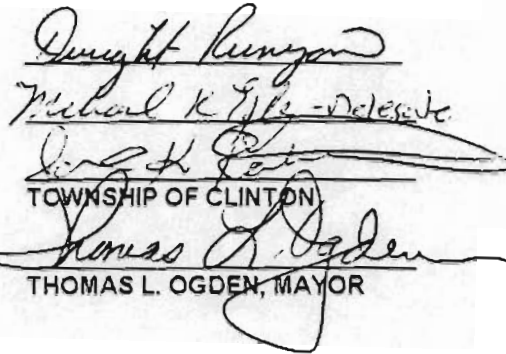 Dwight Runyon
Michael K - Delegate
K
TOWNSHIP OF CLINTON
Thomas L. Ogden
THOMAS L. OGDEN, MAYOR